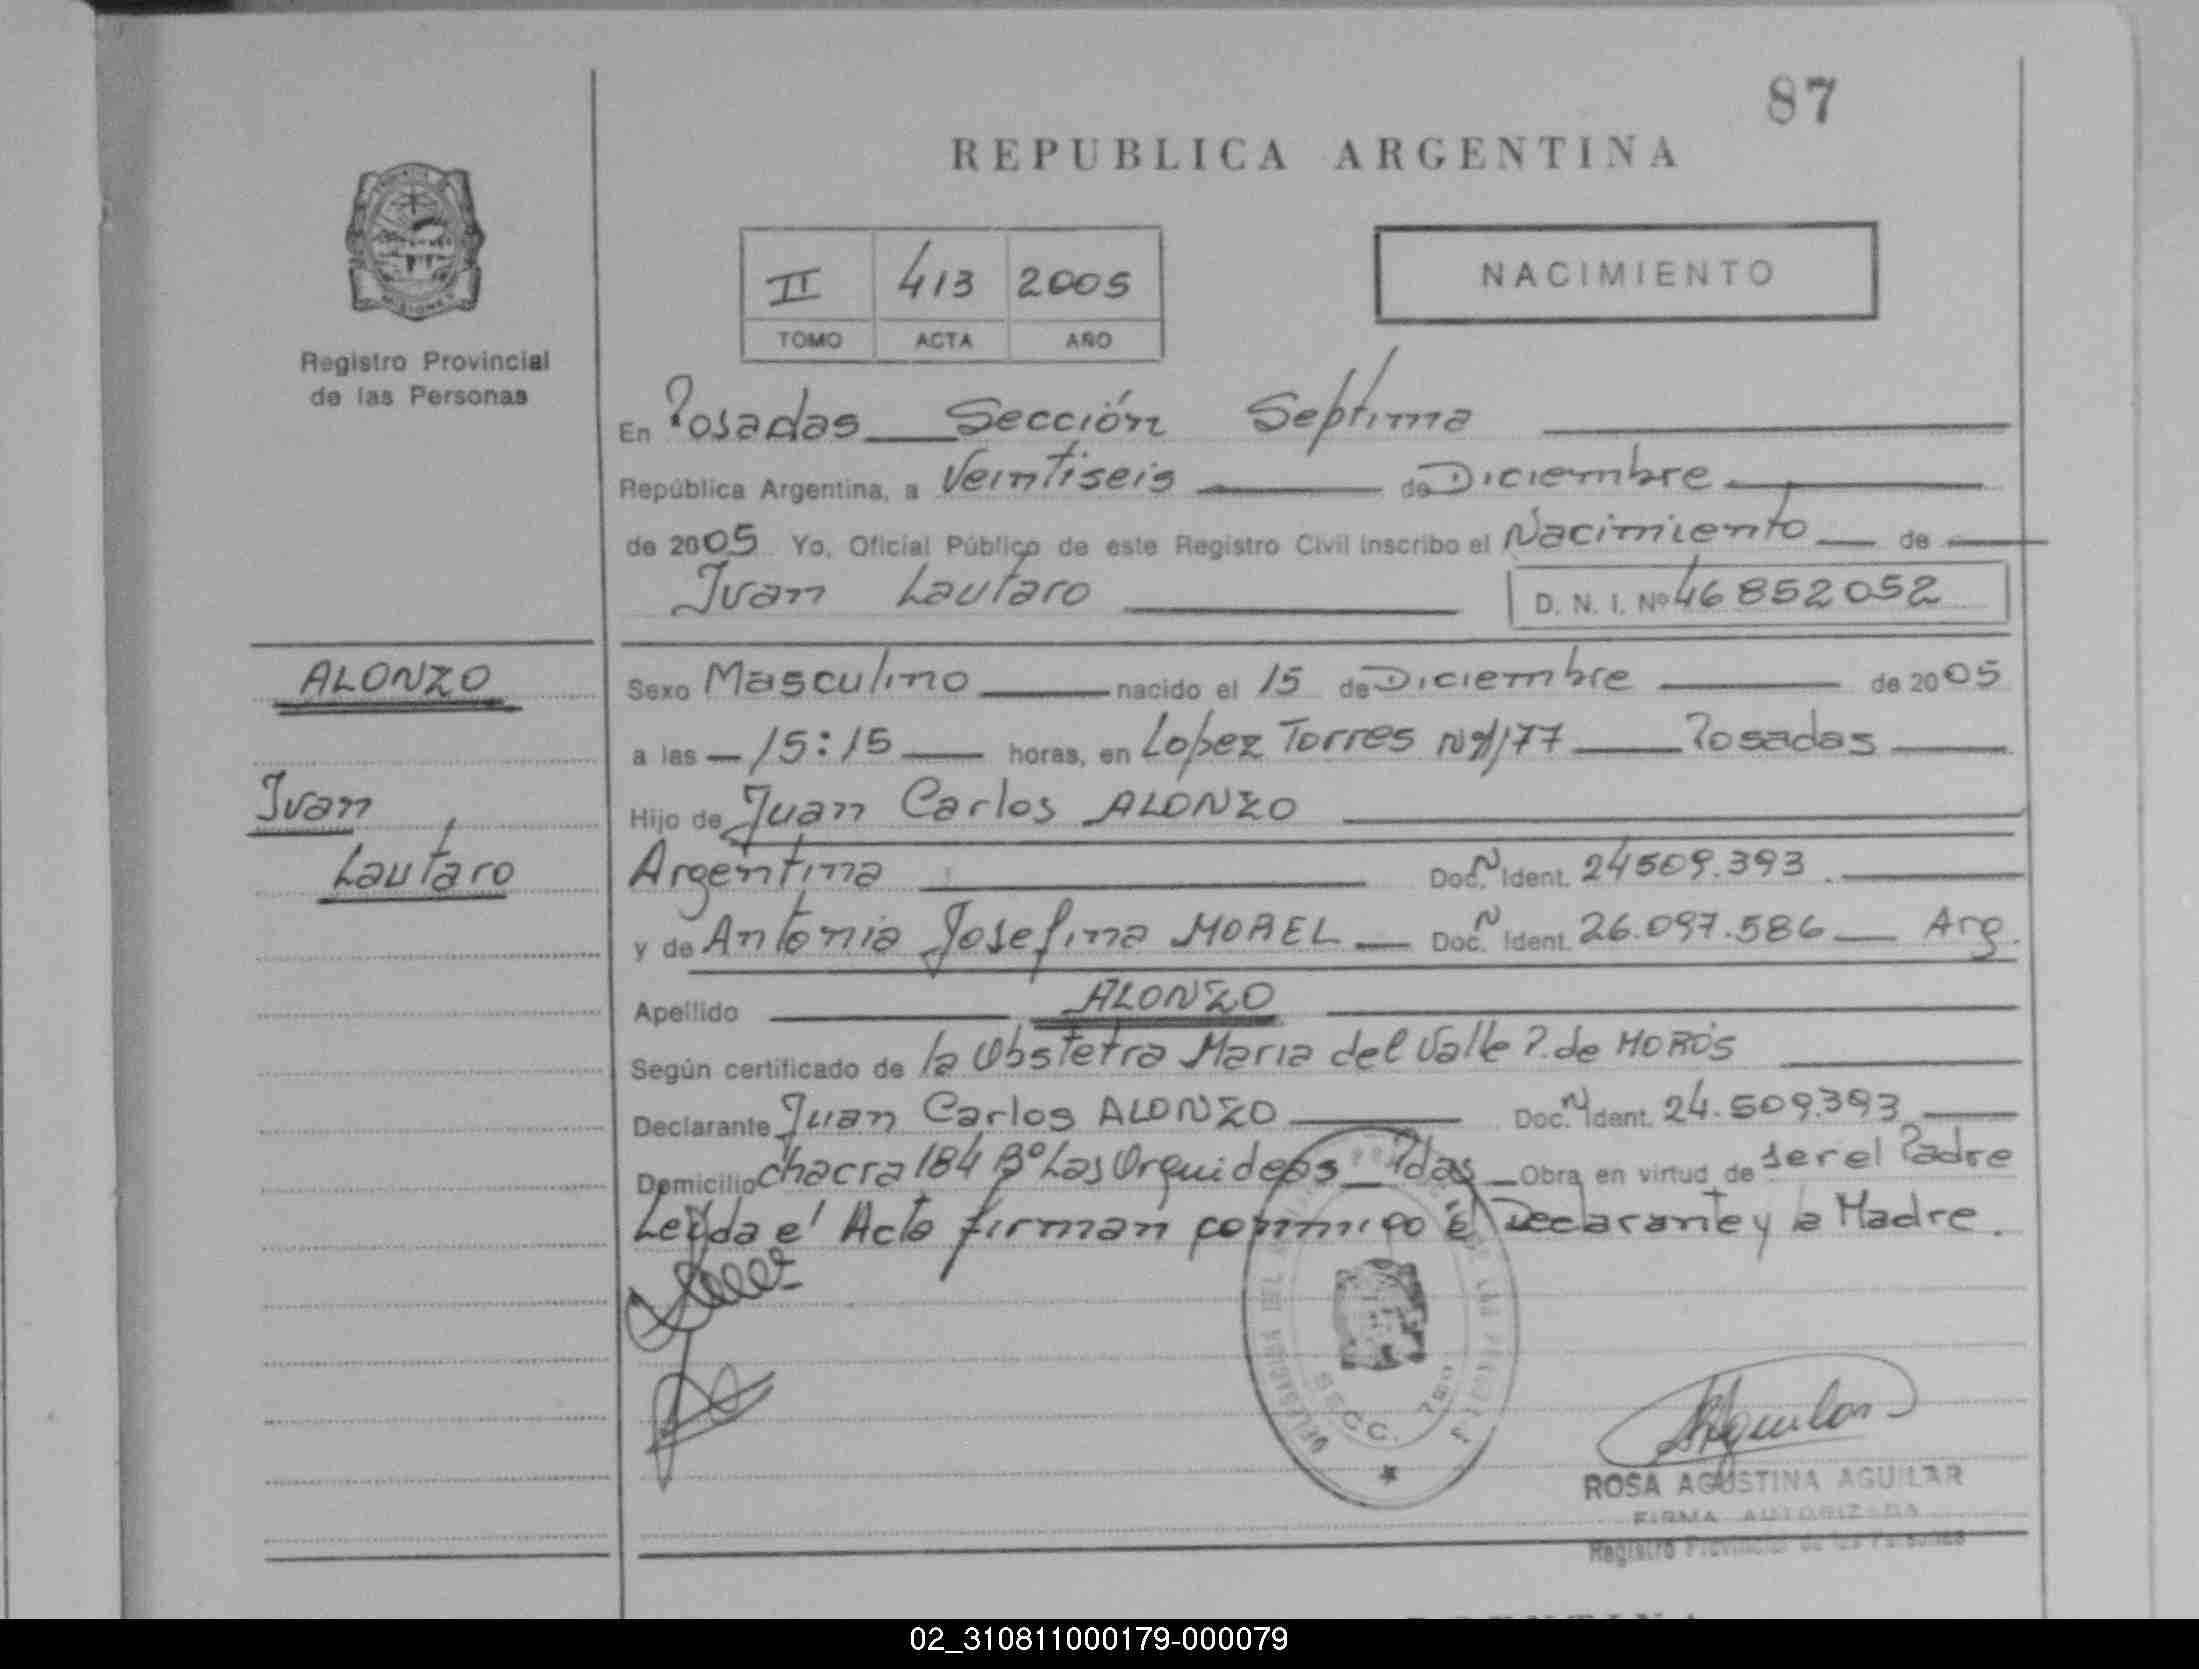 87
REPUBLICA ARGENTINA
II 413 2005
TOMO ACTA AÑO
NACIMIENTO
Registro Provincial
de las Personas
En Posadas Sección Septima
República Argentina, a Veintiseis de Diciembre
de 2005 Yo, Oficial Público de este Registro Civil inscribo el Nacimiento de
Ivan Lautaro D. N. I. Nº 46852052
ALONZO
Ivan
Lautaro
Sexo Masculino nacido el 15 de Diciembre de 2005
a las 15:15 horas, en Lopez Torres Nº1177 Posadas
Hijo de Juan Carlos ALONZO
Argentina Doc. N Ident. 24509.393
y de Antonia Josefina MOREL Doc. N Ident. 26.097.586 Arg.
Apellido ALONZO
Según certificado de la Obstetra Maria del Valle P. de MOROS
Declarante Juan Carlos ALONZO Doc. N Ident. 24.509.393
Domicilio Chacra 184 Bº Las Orquideas Pdas Obra en virtud de ser el Padre
Leida el Acta firman conmigo el Declarante y la Madre.
SECC. 7ma
ROSA AGUSTINA AGUILAR
FIRMA AUTORIZADA
Registro Provincial de las Personas
02_310811000179-000079